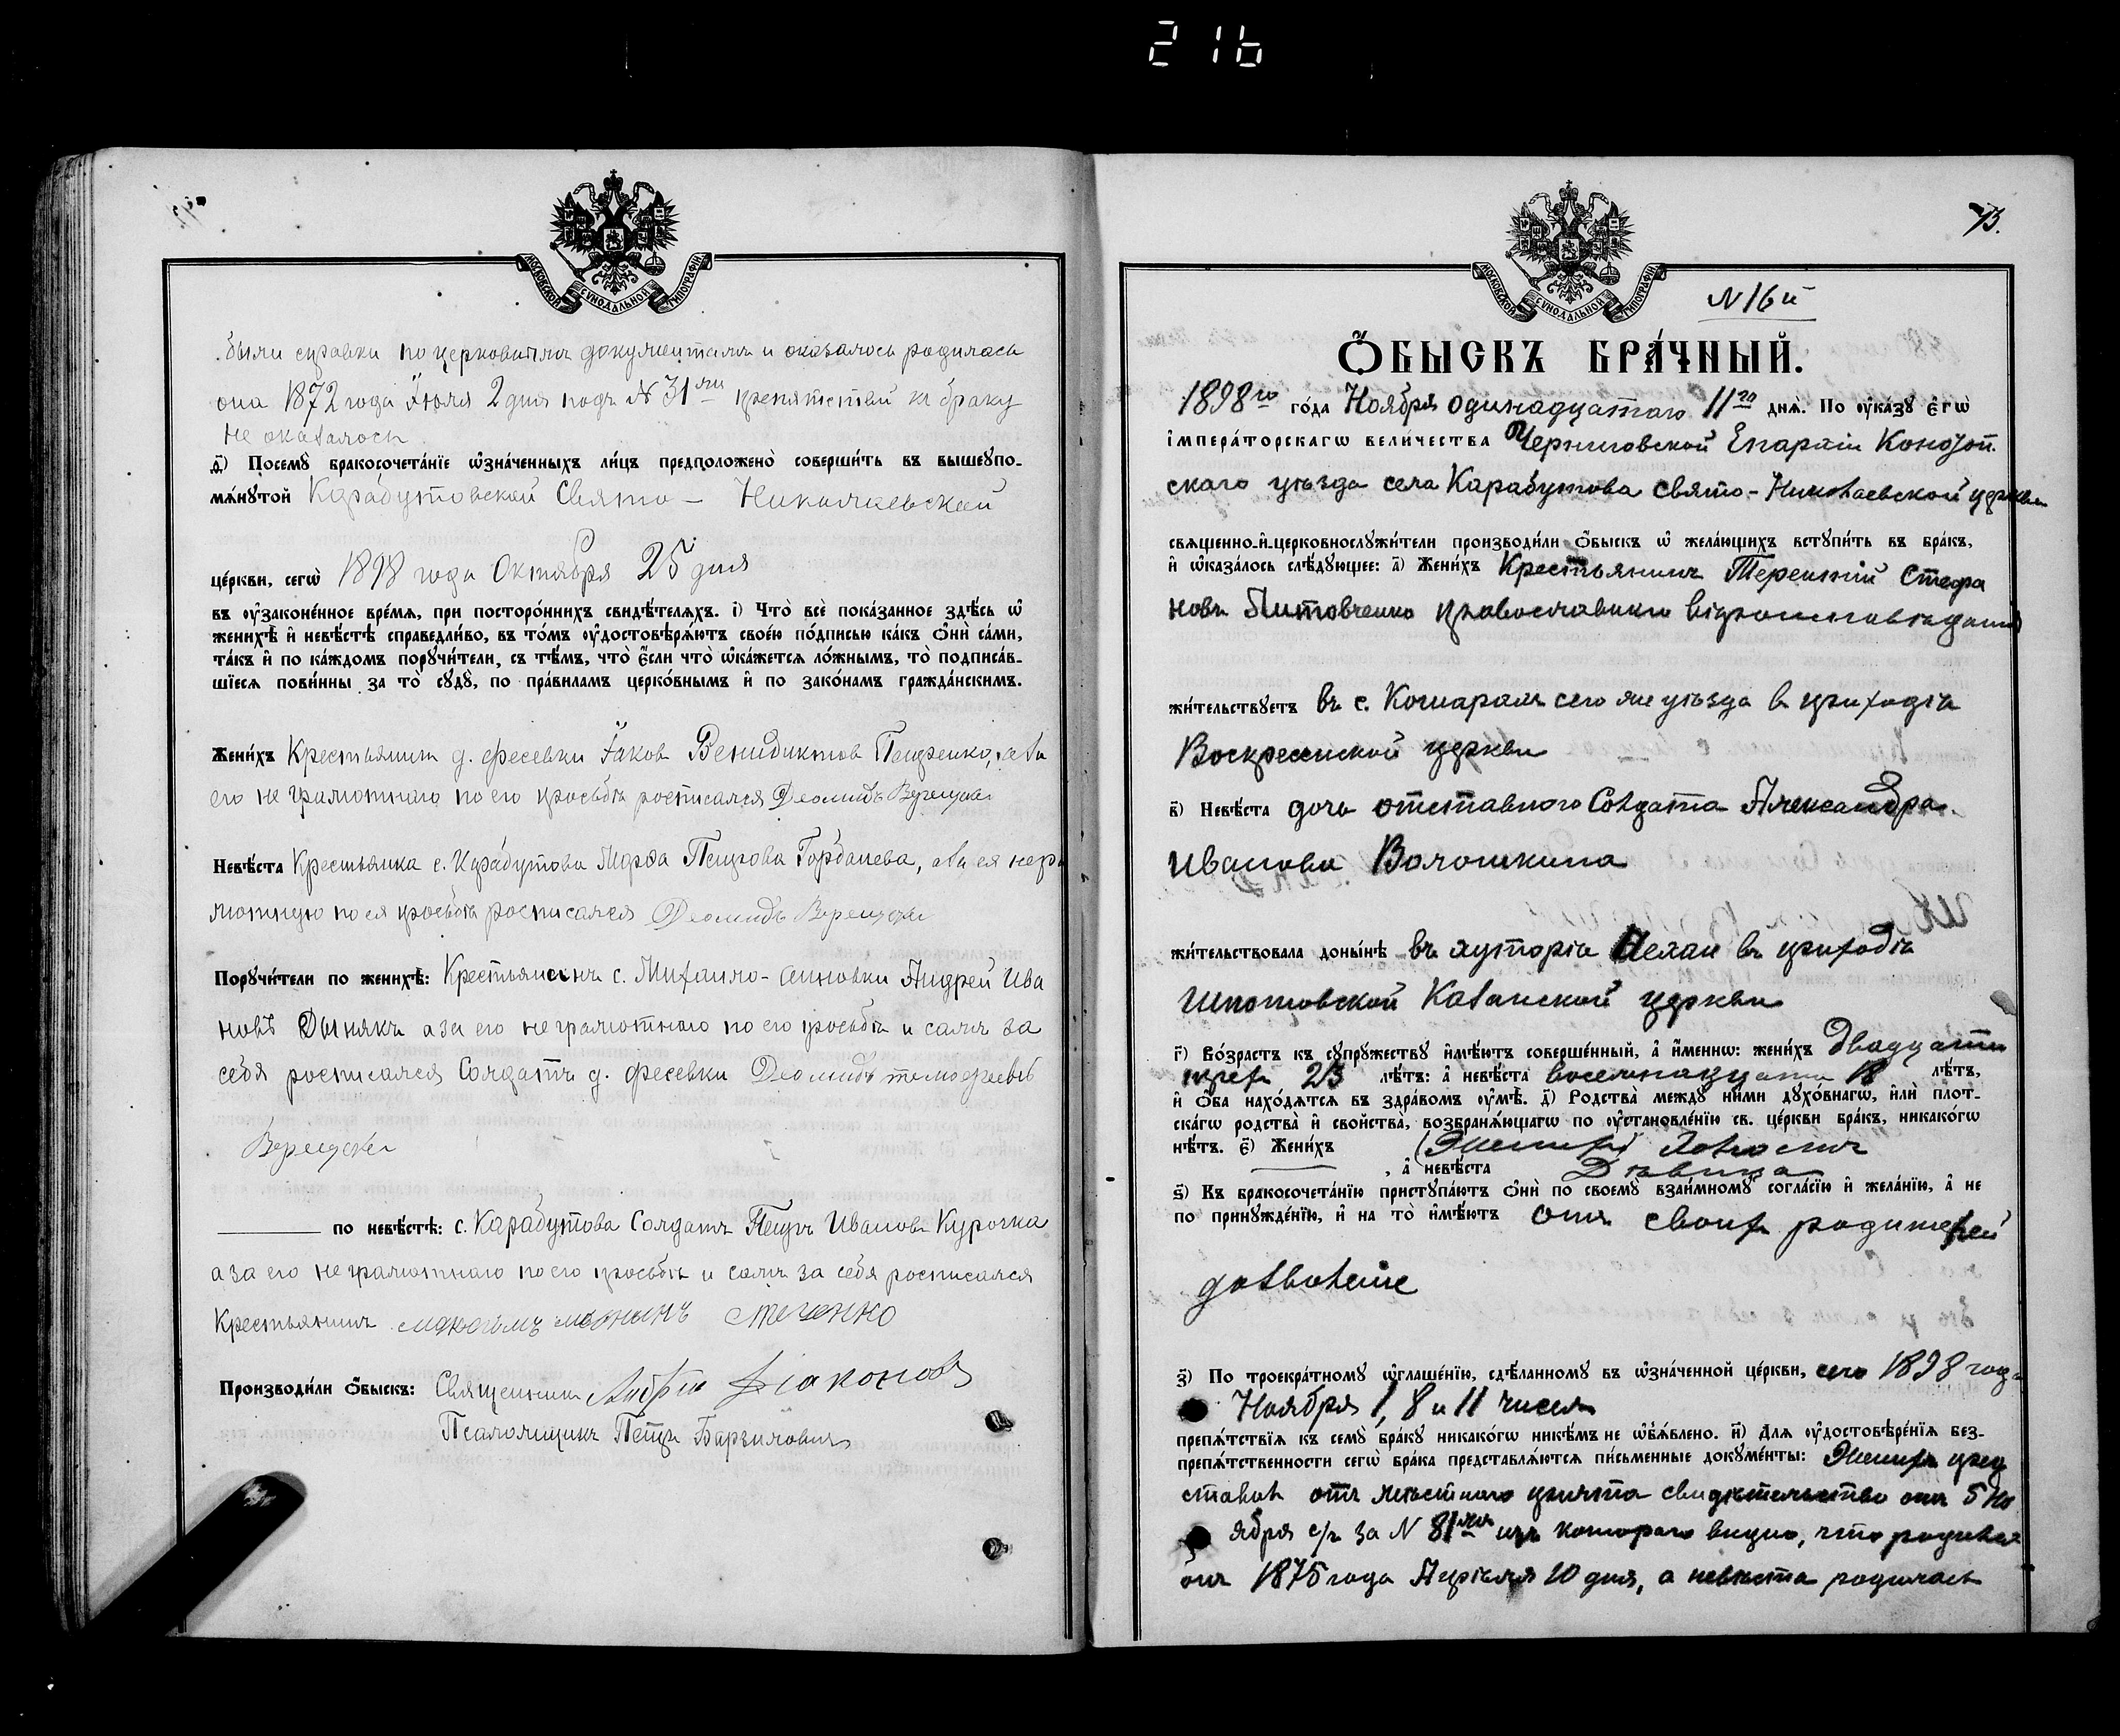 216
МОСКОВСКОЙ СУНОДАЛЬНОЙ ТИПОГРАФІИ
были справки по церковнымъ документамъ и оказалось родилась
она 1872 года Іюля 2 дня подъ № 31мъ препятствій къ браку
не оказалось
д҃) Посемꙋ̀ бракосочета́нїе ѡ҆зна́ченныхъ ли́цъ предположено̀ соверши́ть въ вышеꙋпо-
мѧ́нꙋтой Карабутовской Свято - Николаевской
це́ркви, сегѡ̀ 1898 года Октября 25 дня
въ ᲂу҆законе́нное вре́мѧ, при посторо́ннихъ свидѣ́телѧхъ. і҃) Что̀ всѐ пока́занное здѣ́сь ѡ҆
женихѣ̀ и҆ невѣ́стѣ справедли́во, въ то́мъ ᲂу҆достовѣрѧ́ютъ свое́ю по́дписью ка́къ ѻ҆нѝ са́ми,
та́къ и҆ по ка́ждомъ порꙋчи́тели, съ тѣ́мъ, что̀ є҆́сли что̀ ѡ҆ка́жетсѧ ло́жнымъ, то̀ подписа́в-
шїесѧ пови́нны за то̀ сꙋдꙋ̀, по пра́виламъ церко́внымъ и҆ по зако́намъ гражда́нскимъ.
Жени́хъ Крестьянинъ д. Фесевки Іаковъ Венидиктовъ Петренко, а за
его не грамотнаго по его просьбѣ росписался Деомидъ
Невѣ́ста Крестьянка с. Карабутова Марѳа Петрова Горбачева, а за ея негра
мотную по ея просьбѣ росписался Деомидъ
Порꙋчи́тели по женихѣ̀: Крестьянинъ с. Михайло- Андрей Ива
новъ а за его неграмотнаго по его просьбѣ и самъ за
себя росписался Солдатъ д. Фесевки Деомидъ
по невѣ́стѣ: с. Карабутова Солдатъ Петръ Ивановъ Курочка
а за его не грамотнаго по его просьбѣ и самъ за себя росписался
Крестьянинъ
Производи́ли ѻ҆́быскъ: Священникъ Діаконовъ
Псаломщикъ Петръ
73.
МОСКОВСКОЙ СУНОДАЛЬНОЙ ТИПОГРАФІИ
N 16й
Ѻ҆́БЫСКЪ БРА́ЧНЫЙ.
1898го го́да Ноября одинадцатаго 11го днѧ̀. По ᲂу҆ка́зꙋ є҆гѡ̀
і҆мпера́торскагѡ вели́чества Черниговской Епархіи Конотоп
скаго уѣзда села Карабутова Свято-Николаевской церкви
свѧщенно-и҆-церковнослꙋжи́тели производи́ли ѻ҆́быскъ ѡ҆ жела́ющихъ встꙋпи́ть въ бра́къ,
и҆ ѡ҆каза́лось слѣ́дꙋющее: а҃) Жени́хъ Крестьянинъ Терентій Стефа
новъ Литовченко православнаго вѣроисповѣданія
жи́тельствꙋетъ въ с. Кошарахъ сего же уѣзда въ приходѣ
Воскресенской церкви
в҃) Невѣ́ста дочь отставного Солдата Александра
Иванова Волошкина
жи́тельствовала доны́нѣ въ хуторѣ въ приходѣ
Шпотовской Казанской церкви
г҃) Во́зрастъ къ сꙋпрꙋ́жествꙋ и҆мѣ́ютъ соверше́нный, а҆ и҆́меннѡ: жени́хъ двадцати
трехъ 23 лѣ́тъ: а҆ невѣ́ста восемнадцати 18 лѣ́тъ,
и҆ ѻ҆́ба нахо́дѧтсѧ въ здра́вомъ ᲂу҆мѣ̀. д҃) Родства̀ междꙋ̀ ни́ми дꙋхо́внагѡ, и҆лѝ пло́т-
ска́гѡ родства̀ и҆ сво́йства, возбранѧ́ющагѡ по ᲂу҆становле́нїю св. це́ркви бра́къ, никако́гѡ
нѣ́тъ. є҃) Жени́хъ (Женихъ Холостъ
, а҆ невѣ́ста Дѣвица
ѕ҃) Къ бракосочета́нїю пристꙋпа́ютъ ѻ҆нѝ по своемꙋ̀ взаи́мномꙋ согла́сїю и҆ жела́нїю, а҆ не
по принꙋжде́нїю, и҆ на то̀ и҆мѣ́ютъ отъ своихъ родителей
дозволеніе
з҃) По троекра́тномꙋ ѡ҆глаше́нїю, сдѣ́ланномꙋ въ ѡ҆зна́ченной це́ркви, сего 1898 года
Ноября 1, 8 и 11 чиселъ
препѧ́тствїѧ къ семꙋ̀ бра́кꙋ никако́гѡ никѣ́мъ не ѡ҆б̾ѧ́влено. и҃) Длѧ ᲂу҆достовѣре́нїѧ без-
препѧ́тственности сегѡ̀ бра́ка представлѧ́ютсѧ пи́сьменные докꙋме́нты: Женихъ пред
ставилъ отъ мѣстнаго причта свидѣтельство отъ 5 Но
ября с/г за N 81мъ изъ котораго видно, что родился
онъ 1875 года Апрѣля 10 дня, а невѣста родилась